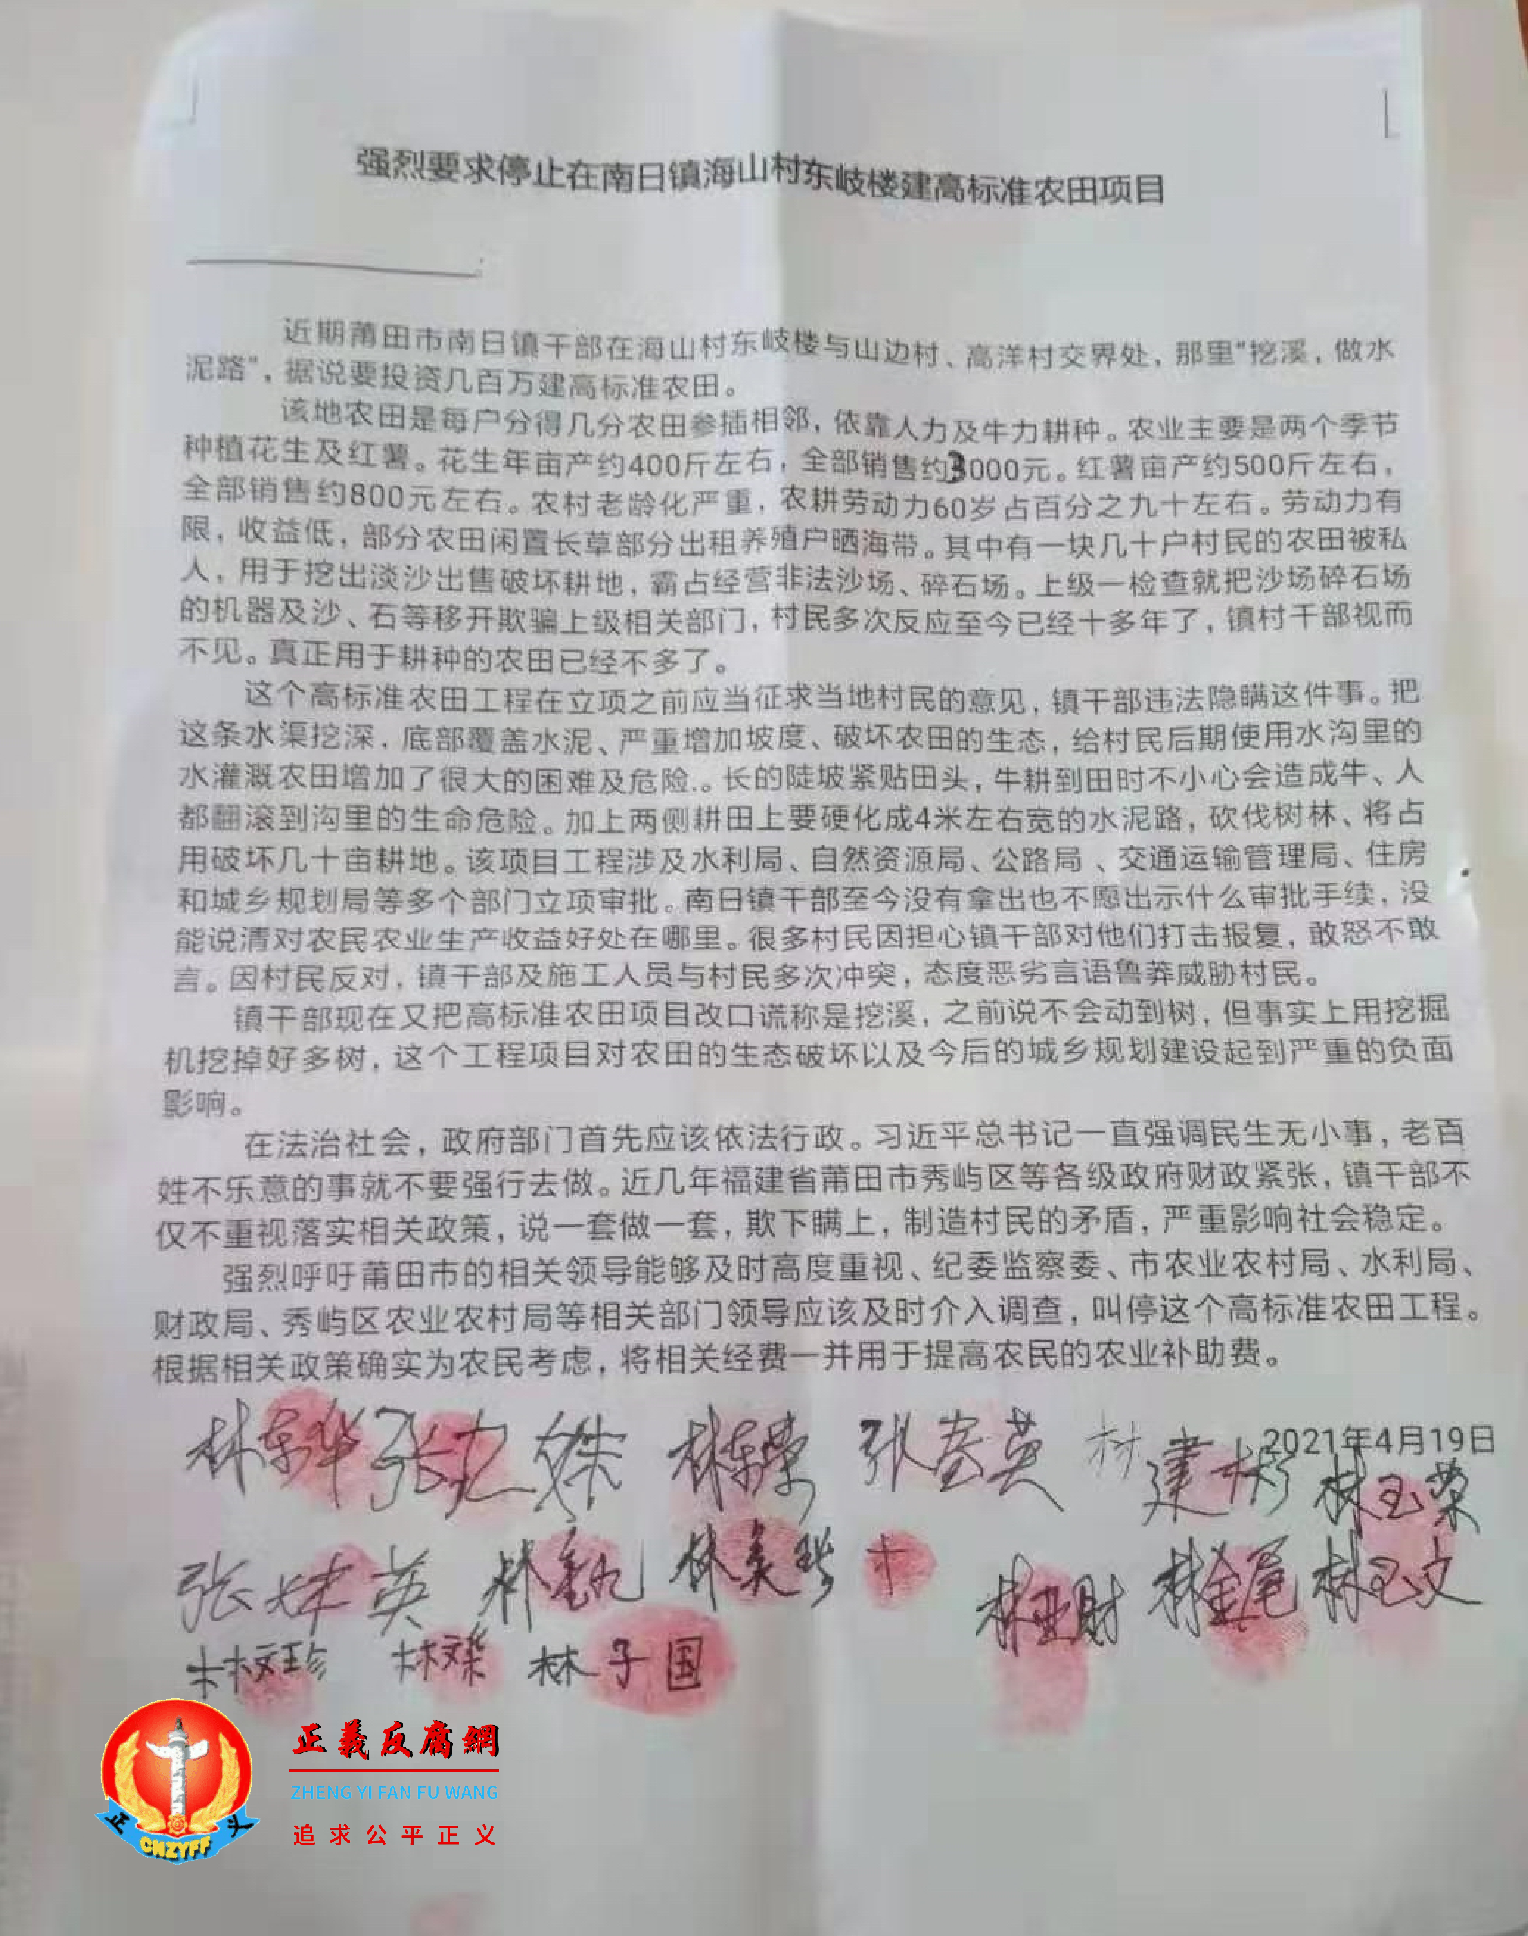 强烈要求停止在南日镇海山村东岐楼建高标准农田项目
近期莆田市南日镇干部在海山村东岐楼与山边村、高洋村交界处，那里"挖溪，做水
泥路"，据说要投资几百万建高标准农田。
该地农田是每户分得几分农田参插相邻，依靠人力及牛力耕种。农业主要是两个季节
种植花生及红薯。花生年亩产约400斤左右，全部销售约3000元。红薯亩产约500斤左右，
全部销售约800元左右。农村老龄化严重，农耕劳动力60岁占百分之九十左右。劳动力有
限，收益低，部分农田闲置长草部分出租养殖户晒海带。其中有一块几十户村民的农田被私
人，用于挖出淡沙出售破坏耕地，霸占经营非法沙场、碎石场。上级一检查就把沙场碎石场
的机器及沙、石等移开欺骗上级相关部门，村民多次反应至今已经十多年了，镇村干部视而
不见。真正用于耕种的农田已经不多了。
这个高标准农田工程在立项之前应当征求当地村民的意见，镇干部违法隐瞒这件事。把
这条水渠挖深，底部覆盖水泥、严重增加坡度、破坏农田的生态，给村民后期使用水沟里的
水灌溉农田增加了很大的困难及危险.。长的陡坡紧贴田头，牛耕到田时不小心会造成牛、人
都翻滚到沟里的生命危险。加上两侧耕田上要硬化成4米左右宽的水泥路，砍伐树林、将占
用破坏几十亩耕地。该项目工程涉及水利局、自然资源局、公路局、交通运输管理局、住房
和城乡规划局等多个部门立项审批。南日镇干部至今没有拿出也不愿出示什么审批手续，没
能说清对农民农业生产收益好处在哪里。很多村民因担心镇干部对他们打击报复，敢怒不敢
言。因村民反对，镇干部及施工人员与村民多次冲突，态度恶劣言语鲁莽威胁村民。
镇干部现在又把高标准农田项目改口谎称是挖溪，之前说不会动到树，但事实上用挖掘
机挖掉好多树，这个工程项目对农田的生态破坏以及今后的城乡规划建设起到严重的负面
影响。
在法治社会，政府部门首先应该依法行政。习近平总书记一直强调民生无小事，老百
姓不乐意的事就不要强行去做。近几年福建省莆田市秀屿区等各级政府财政紧张，镇干部不
仅不重视落实相关政策，说一套做一套，欺下瞒上，制造村民的矛盾，严重影响社会稳定。
强烈呼吁莆田市的相关领导能够及时高度重视、纪委监察委、市农业农村局、水利局、
财政局、秀屿区农业农村局等相关部门领导应该及时介入调查，叫停这个高标准农田工程。
根据相关政策确实为农民考虑，将相关经费一并用于提高农民的农业补助费。
2021年4月19日
林东华 张九妹 林东荣 张 英 林建彬 林玉荣
张妹英 林 林美瑞 林亚财 林金尾 林玉文
林文珍 林文荣 林子国
正義反腐網
ZHENG YI FAN FU WANG
追求公平正义
正 义
CNZYFF